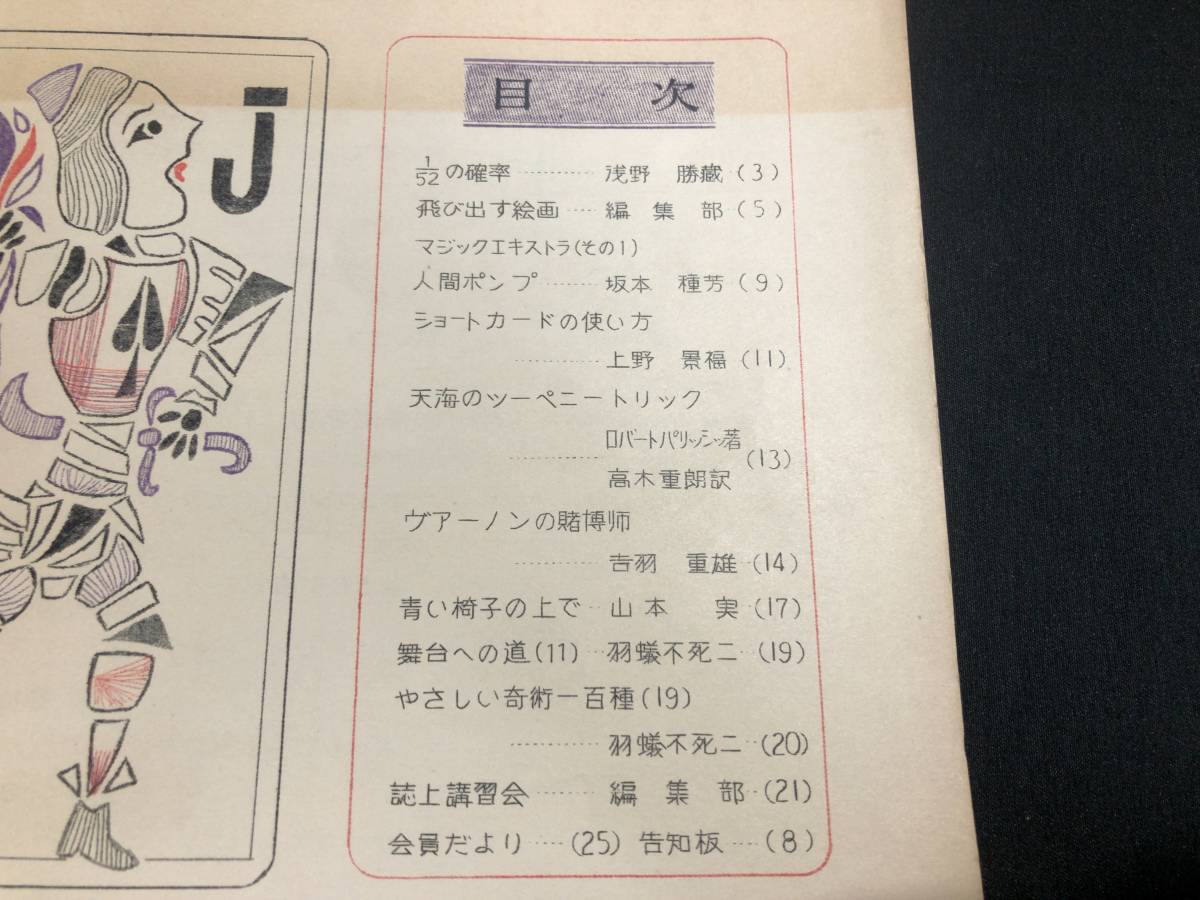 J
目次
1/52の確率………浅野 勝蔵(3)
飛び出す絵画……編集部(5)
マジックエキストラ(その1)
人間ポンプ………坂本 種芳(9)
ショートカードの使い方
………上野 景福(11)
天海のツーペニートリック
ロバートパリッシッ著
………(13)
高木重朗訳
ヴアーノンの賭博师
………吉羽 重雄(14)
青い椅子の上で…山本 実(17)
舞台への道(11)…羽蟻不死二(19)
やさしい奇術一百種(19)
………羽蟻不死二(20)
誌上講習会………編集部(21)
会員だより……(25) 告知板……(8)